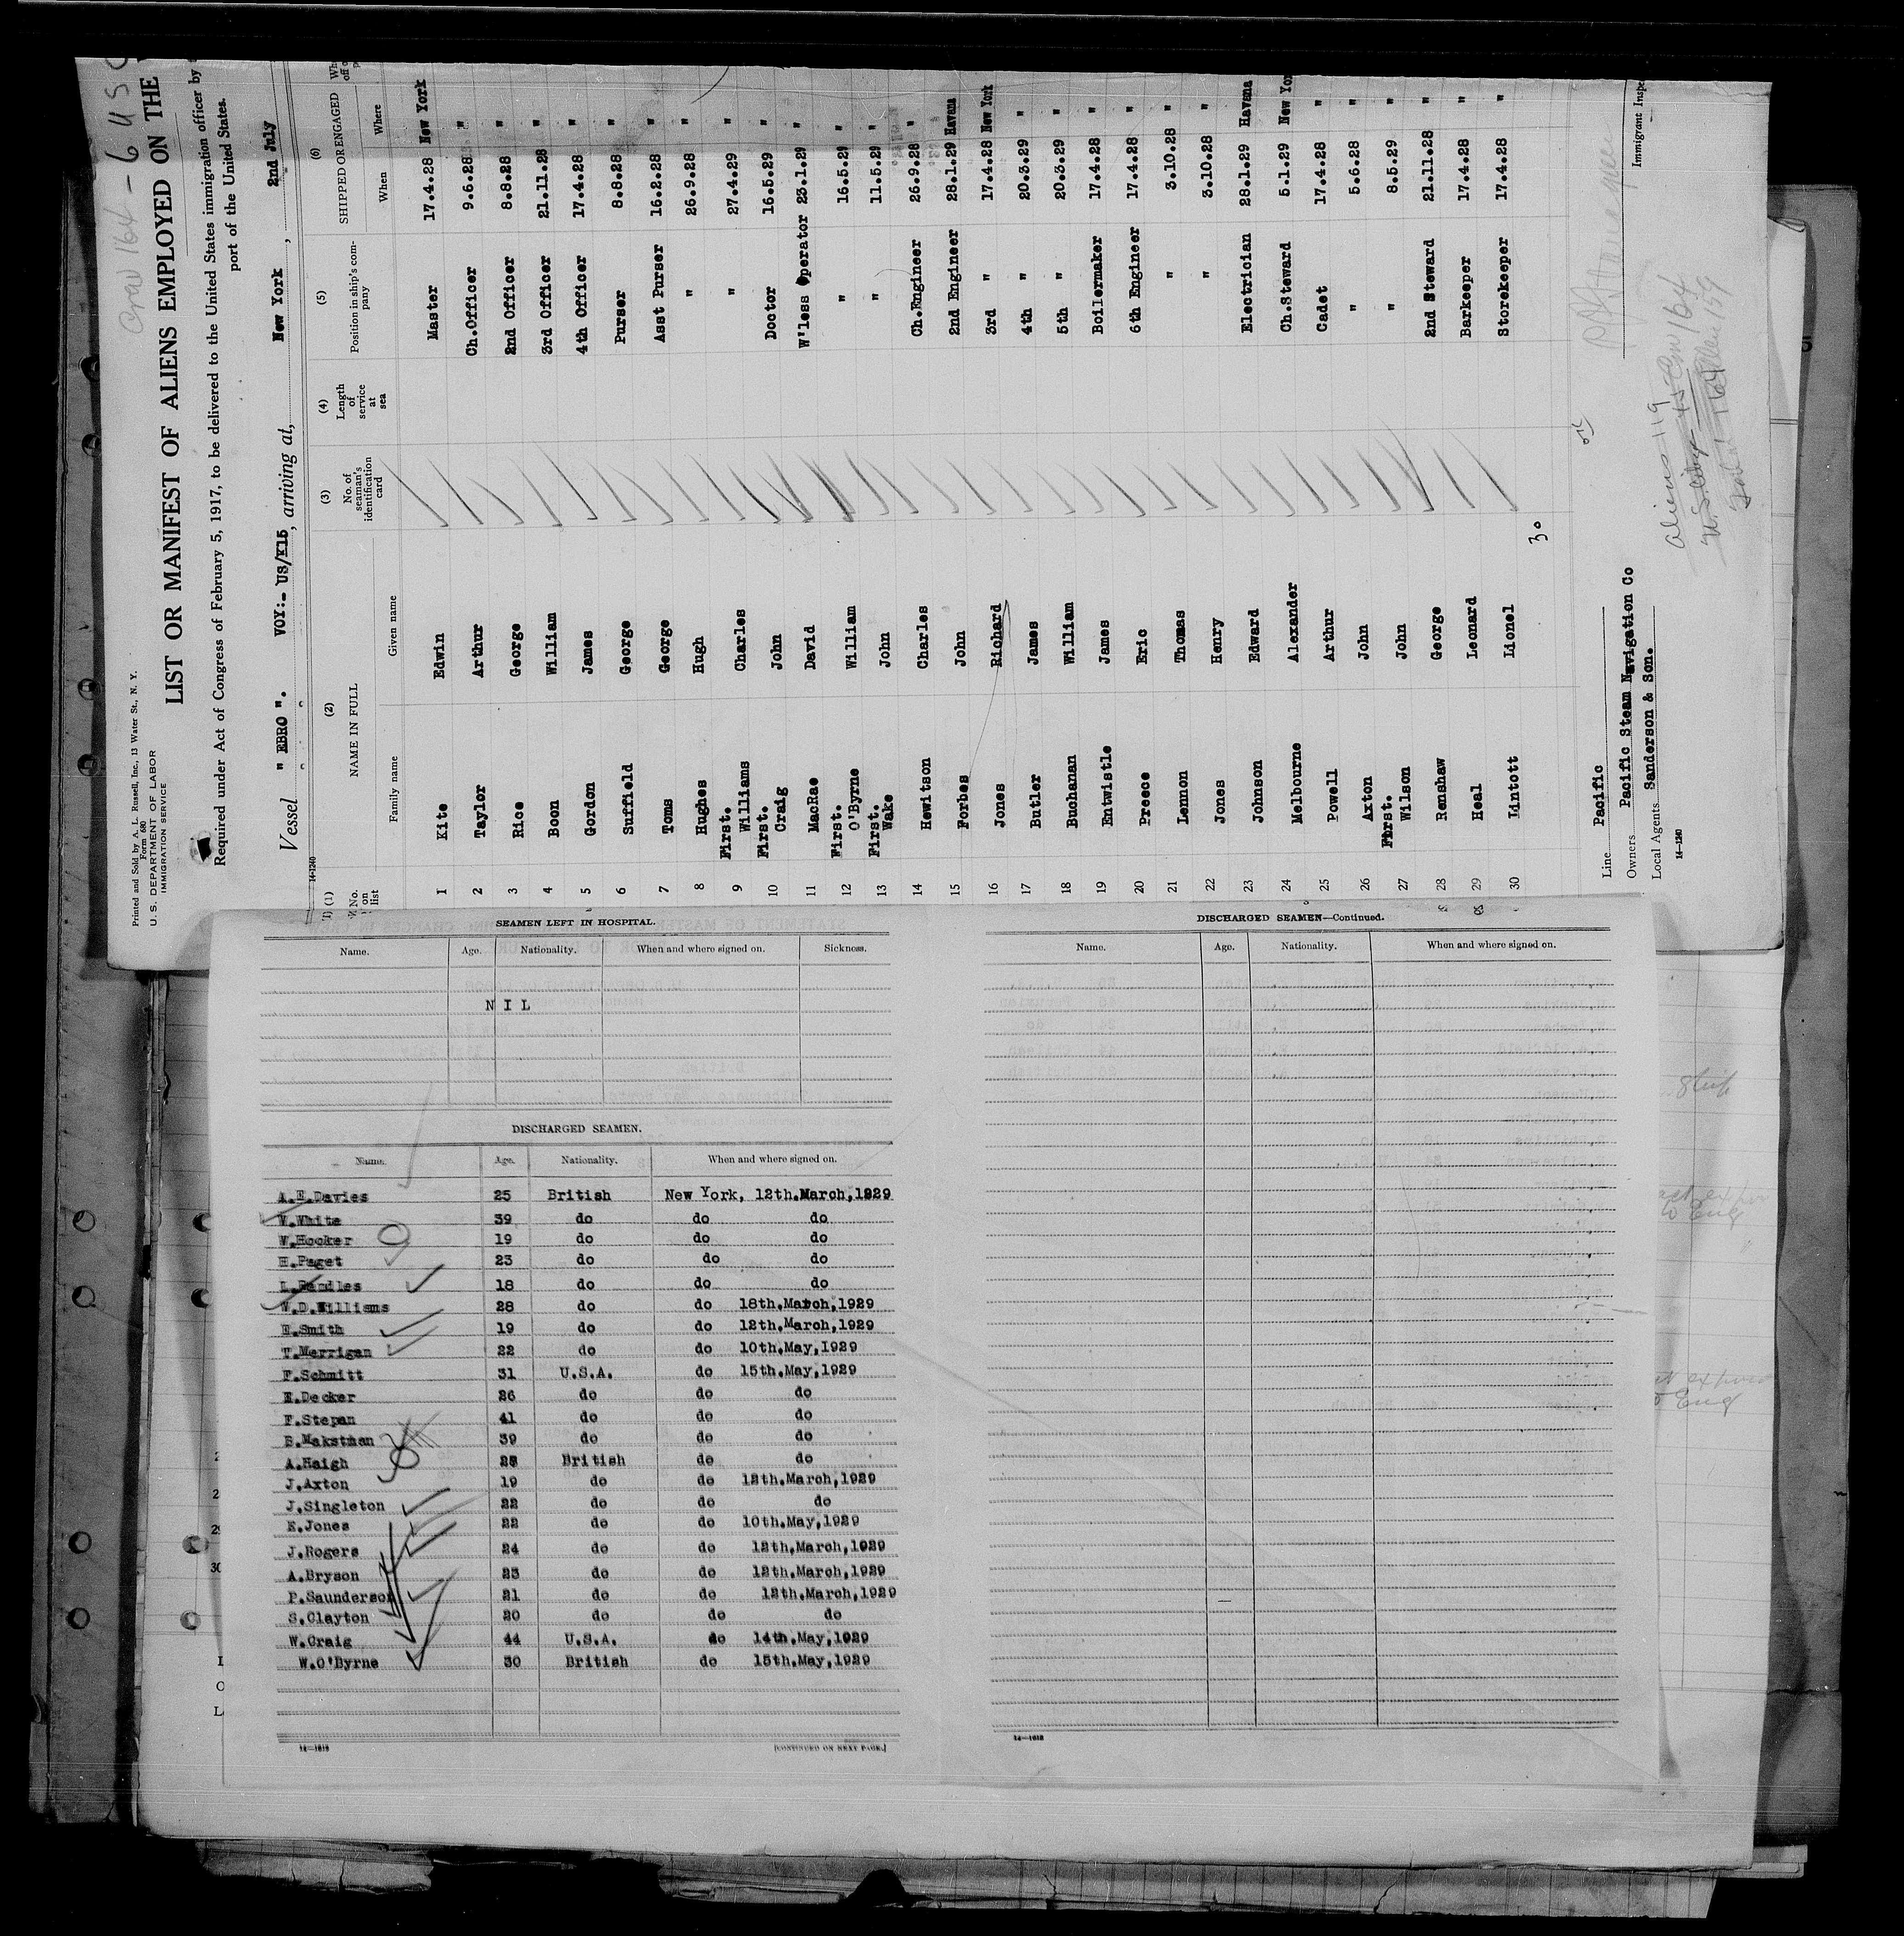 Crew 164 - 6 US C
Printed and Sold by A. L. Russell, Inc., 13 Water St., N. Y.
Form 680
U. S. DEPARTMENT OF LABOR
IMMIGRATION SERVICE
LIST OR MANIFEST OF ALIENS EMPLOYED ON THE
Required under Act of Congress of February 5, 1917, to be delivered to the United States immigration officer by
port of the United States.
Vessel " EBRO ". VOY:- US/E15, arriving at, New York, 2nd July
14-1240
(1) (2) (3) (4) (5) (6)
No. on list NAME IN FULL No. of seaman's identification card Length of service at sea Position in ship's company SHIPPED OR ENGAGED
Family name Given name When Where
1 Kite Edwin Master 17.4.28 New York
2 Taylor Arthur Ch.Officer 9.6.28 "
3 Rice George 2nd Officer 8.8.28 "
4 Boon William 3rd Officer 21.11.28 "
5 Gordon James 4th Officer 17.4.28 "
6 Suffield George Purser 8.8.28 "
7 Toms George Asst Purser 16.2.28 "
8 Hughes Hugh " 26.9.28 "
9 First. Williams Charles " 27.4.29 "
10 First. Craig John Doctor 16.5.29 "
11 MacRae David W'less Operator 23.1.29 "
12 First. O'Byrne William " 16.5.29 "
13 First. Wake John " 11.5.29 "
14 Hewitson Charles Ch.Engineer 26.9.28 "
15 Forbes John 2nd Engineer 28.1.29 Havana
16 Jones Richard 3rd " 17.4.28 New York
17 Butler James 4th " 20.3.29 "
18 Buchanan William 5th " 20.3.29 "
19 Entwistle James Boilermaker 17.4.28 "
20 Preece Eric 6th Engineer 17.4.28 "
21 Lennon Thomas " 3.10.28 "
22 Jones Henry " 3.10.28 "
23 Johnson Edward Electrician 28.1.29 Havana
24 Melbourne Alexander Ch.Steward 5.1.29 New Yor
25 Powell Arthur Cadet 17.4.28 "
26 Axton John " 5.6.28 "
27 First. Wilson John " 8.5.29 "
28 Renshaw George 2nd Steward 21.11.28 "
29 Heal Leonard Barkeeper 17.4.28 "
30 Lintott Lionel Storekeeper 17.4.28 "
30
Line Pacific
Owners Pacific Steam Navigation Co
Local Agents Sanderson & Son.
14-1240
Immigrant Inspe
Aliens 119
Total 164
SEAMEN LEFT IN HOSPITAL.
Name. Age. Nationality. When and where signed on. Sickness.
N I L
DISCHARGED SEAMEN.
Name. Age. Nationality. When and where signed on.
A.E.Davies 25 British New York, 12th.March,1929
W.White 39 do do do
W.Hooker 19 do do do
H.Paget 23 do do do
L.Randles 18 do do do
W.D.Williams 28 do do 18th.March,1929
E.Smith 19 do do 12th.March,1929
T.Merrigan 22 do do 10th.May,1929
F.Schmitt 31 U.S.A. do 15th.May,1929
E.Decker 26 do do do
F.Stepan 41 do do do
B.Maksthan 39 do do do
A.Haigh 28 British do do
J.Axton 19 do do 12th.March,1929
J.Singleton 22 do do do
E.Jones 22 do do 10th.May,1929
J.Rogers 24 do do 12th.March,1929
A.Bryson 23 do do 12th.March,1929
P.Saunderson 21 do do 12th.March,1929
S.Clayton 20 do do do
W.Craig 44 U.S.A. do 14th.May,1929
W.O'Byrne 30 British do 15th.May,1929
14-1618
[CONTINUED ON NEXT PAGE.]
DISCHARGED SEAMEN—Continued.
Name. Age. Nationality. When and where signed on.
14-1618
Ship
to Eng
Eng